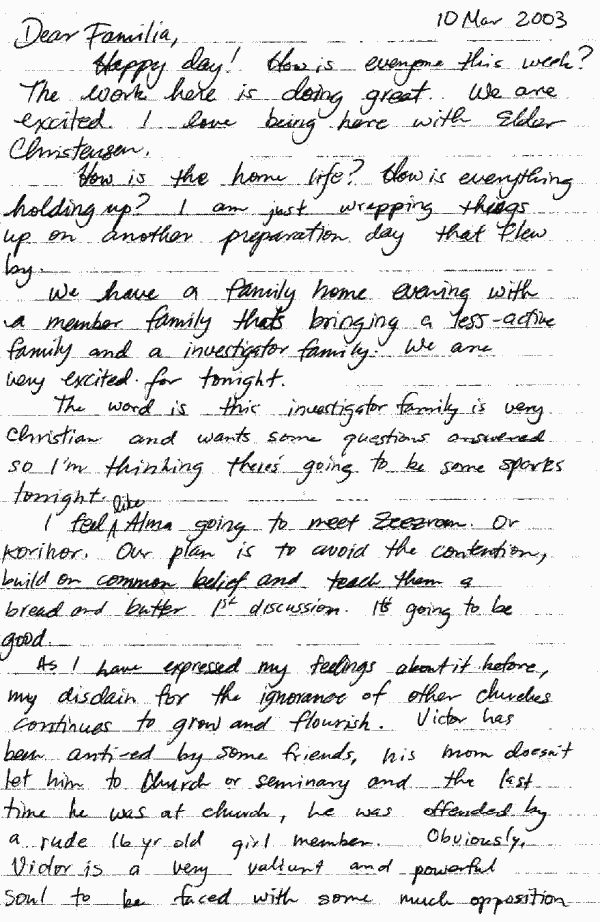 10 Mar 2003
Dear Familia,
Happy day! How is everyone this week?
The work here is doing great. We are
excited. I love being here with Elder
Christensen.
How is the home life? How is everything
holding up? I am just wrapping things
up on another preparation day that flew
by.
We have a family home evening with
a member family thats bringing a less-active
family and a investigator family. We are
very excited for tonight.
The word is this investigator family is very
Christian and wants some questions answered
so I'm thinking there's going to be some sparks
tonight.
I feel like Alma going to meet Zeezrom. Or
Korihor. Our plan is to avoid the contention,
build on common belief and teach them a
bread and butter 1st discussion. It's going to be
good.
As I have expressed my feelings about it before,
my disdain for the ignorance of other churches
continues to grow and flourish. Victor has
been anti-ed by some friends, his mom doesn't
let him to Church or seminary and the last
time he was at church, he was offended by
a rude 16 yr old girl member. Obviously,
Victor is a very valiunt and powerful
soul to be faced with some much opposition